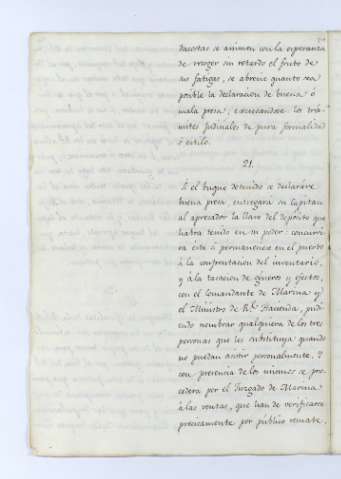 dacostas se animen con la esperanza
de recoger sin retardo el fruto de
sus fatigas, se abrevie quanto sea
posible la declaracion de buena ó
mala presa; excusandose los trá-
mites judiciales de pura formalidad
ó estilo.
21.
Si el buque detenido se declaráre
buena presa entregará su Capitan
al apresador la llave del depósito que
habrá tenido en su poder: concurri-
rá éste si permaneciese en el puerto
á la confrontacion del inventario,
y á la tasacion de géneros y efectos,
con el Comandante de Marina y
el Ministro de Rl. Hacienda, pudi-
endo nombrar qualquiera de los tres
persona que les substituya quando
no puedan asistir personalmente. Y
con presencia de los mismos se pro-
cederá por el Juzgado de Marina
á las ventas, que han de verificarse
precisamente por público remate.